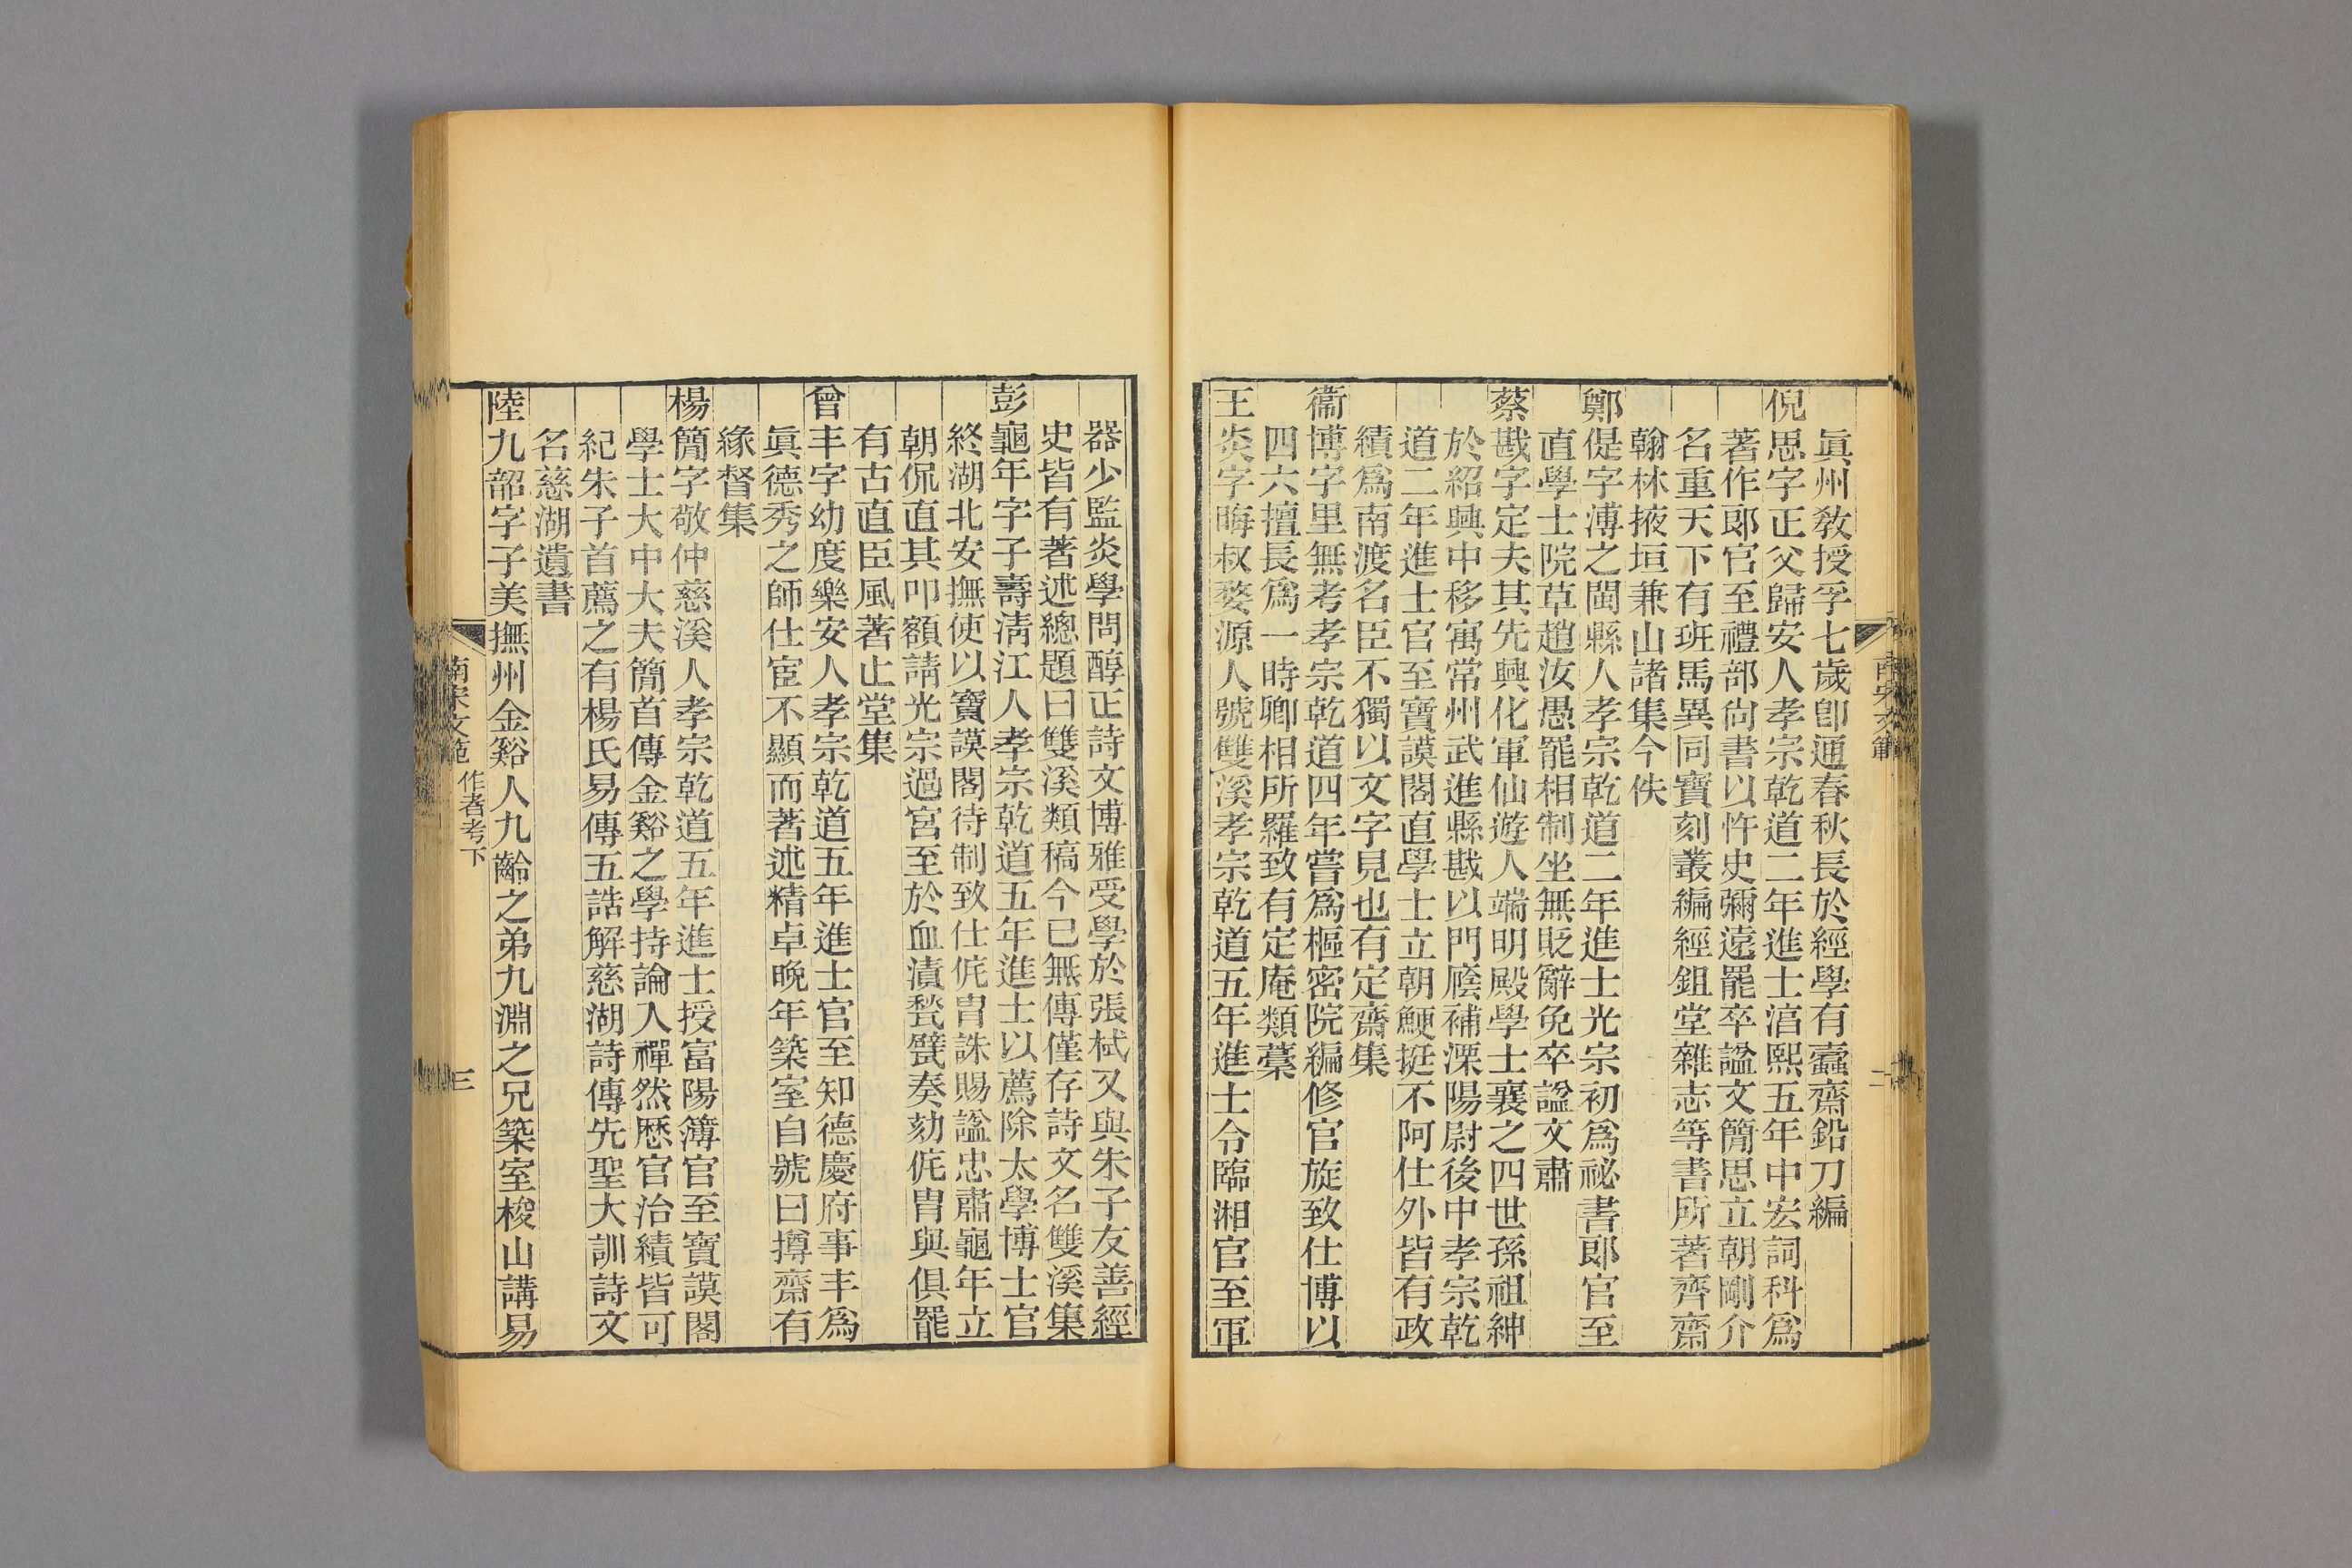 眞州敎授孚七歲卽通春秋長於經學有蠹齋鉛刀編
倪思字正父歸安人孝宗乾道二年進士淳熙五年中宏詞科爲
著作郞官至禮部尙書以忤史彌遠罷卒謚文簡思立朝剛介
名重天下有班馬異同寶刻叢編經鉏堂雜志等書所著齊齋
翰林掖垣兼山諸集今佚
鄭僑字溥之閩縣人孝宗乾道二年進士光宗初爲祕書郞官至
直學士院草趙汝愚罷相制坐無貶辭免卒謚文肅
蔡戡字定夫其先興化軍仙遊人端明殿學士襄之四世孫祖紳
於紹興中移寓常州武進縣戡以門廕補溧陽尉後中孝宗乾
道二年進士官至寶謨閣直學士立朝鯁挺不阿仕外皆有政
績爲南渡名臣不獨以文字見也有定齋集
衞博字里無考孝宗乾道四年嘗爲樞密院編修官旋致仕博以
四六擅長爲一時卿相所羅致有定庵類藁
王炎字晦叔婺源人號雙溪孝宗乾道五年進士令臨湘官至軍
器少監炎學問醇正詩文博雅受學於張栻又與朱子友善經
史皆有著述總題曰雙溪類稿今已無傳僅存詩文名雙溪集
彭龜年字子壽淸江人孝宗乾道五年進士以薦除太學博士官
終湖北安撫使以寶謨閣待制致仕侂冑誅賜謚忠肅龜年立
朝侃直其叩額請光宗過宮至於血漬甃甓奏劾侂冑與俱罷
有古直臣風著止堂集
曾丰字幼度樂安人孝宗乾道五年進士官至知德慶府事丰爲
眞德秀之師仕宦不顯而著述精卓晚年築室自號曰撙齋有
緣督集
楊簡字敬仲慈溪人孝宗乾道五年進士授富陽簿官至寶謨閣
學士大中大夫簡首傳金谿之學持論入禪然歷官治績皆可
紀朱子首薦之有楊氏易傳五誥解慈湖詩傳先聖大訓詩文
名慈湖遺書
陸九韶字子美撫州金谿人九齡之弟九淵之兄築室梭山講易
南宋文範 作者考下 三